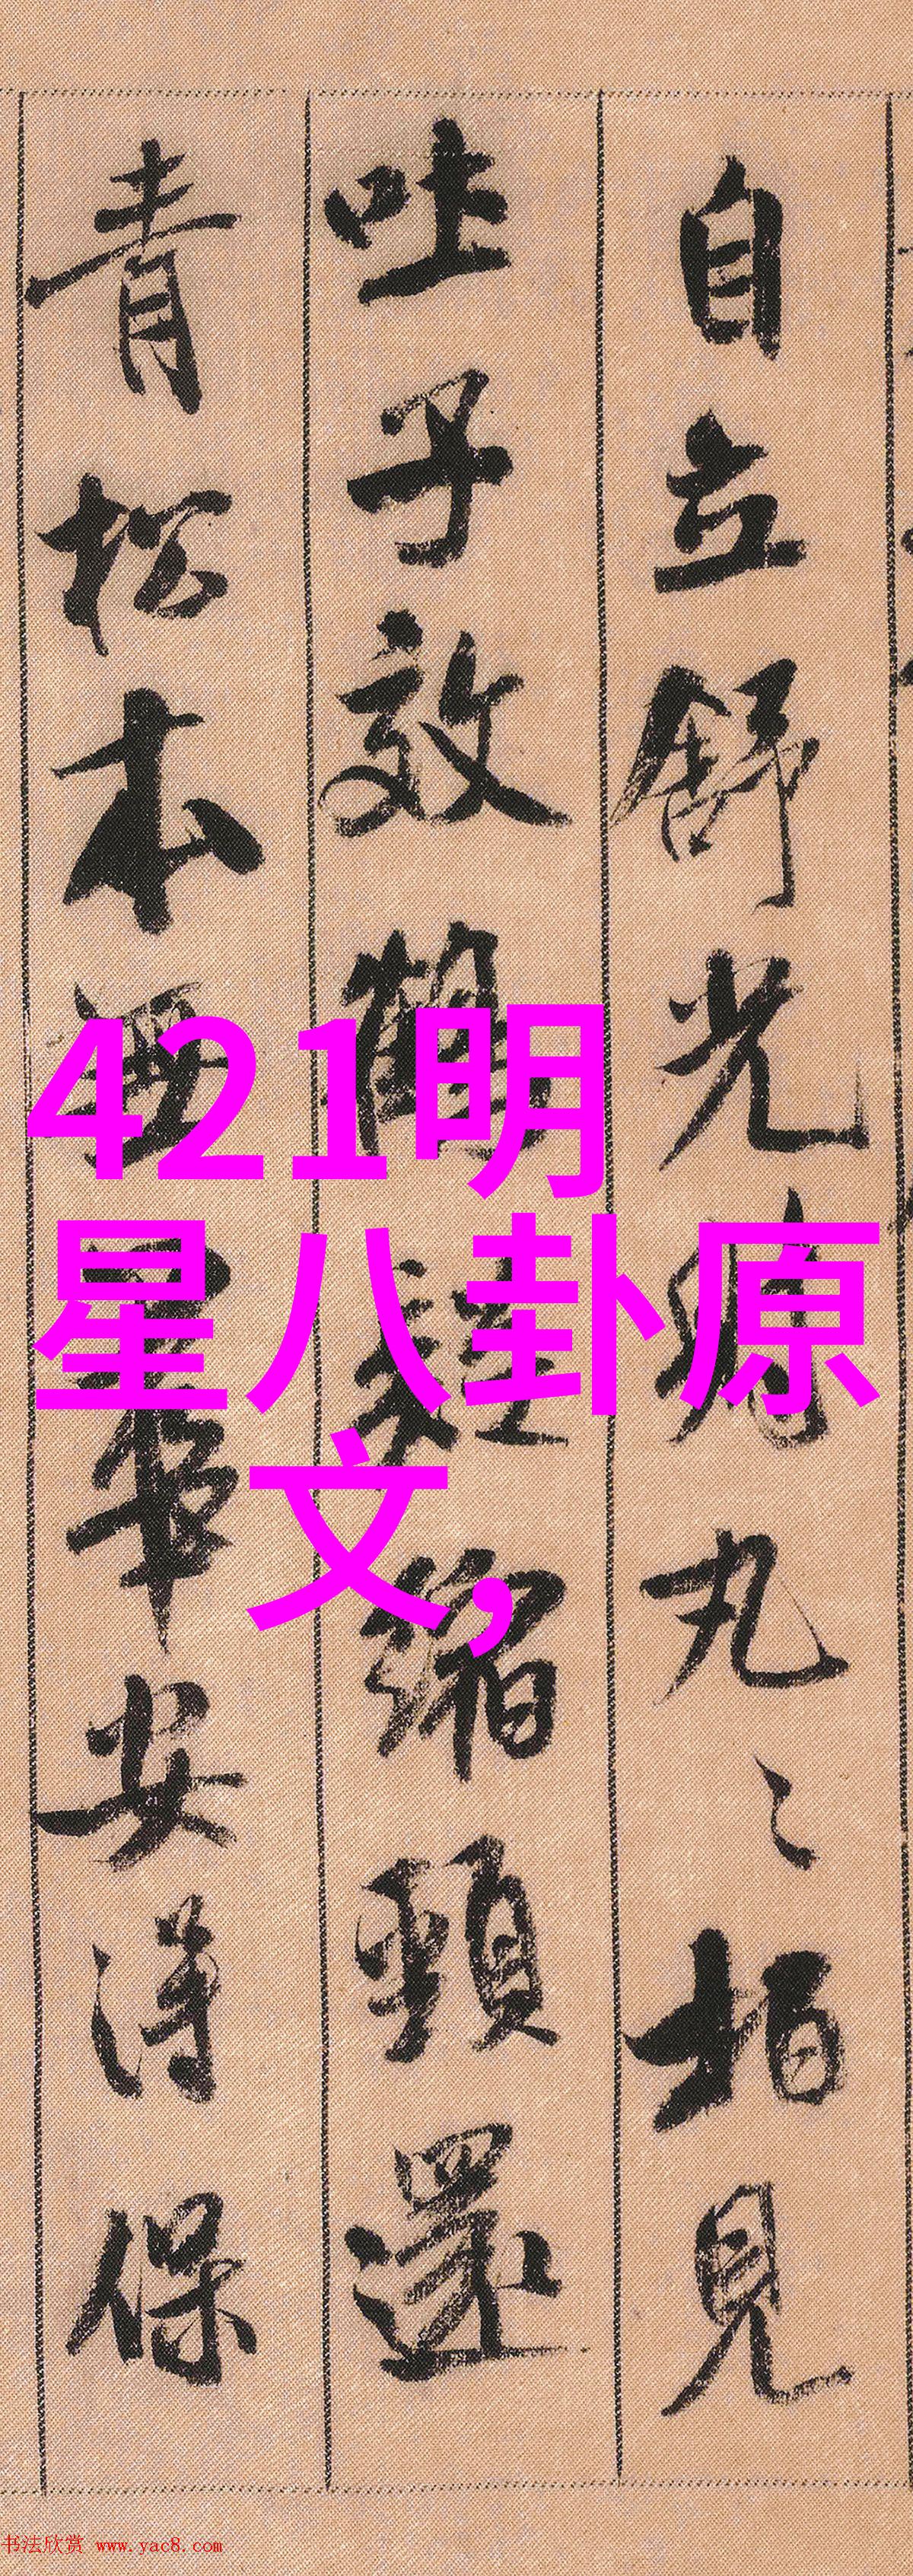 自立舒光射丸〻柏見
吐子效鶴疑縮頸還
青松本無華安得保
421明
星八卦原
文,
书法欣赏 www.yac8.com